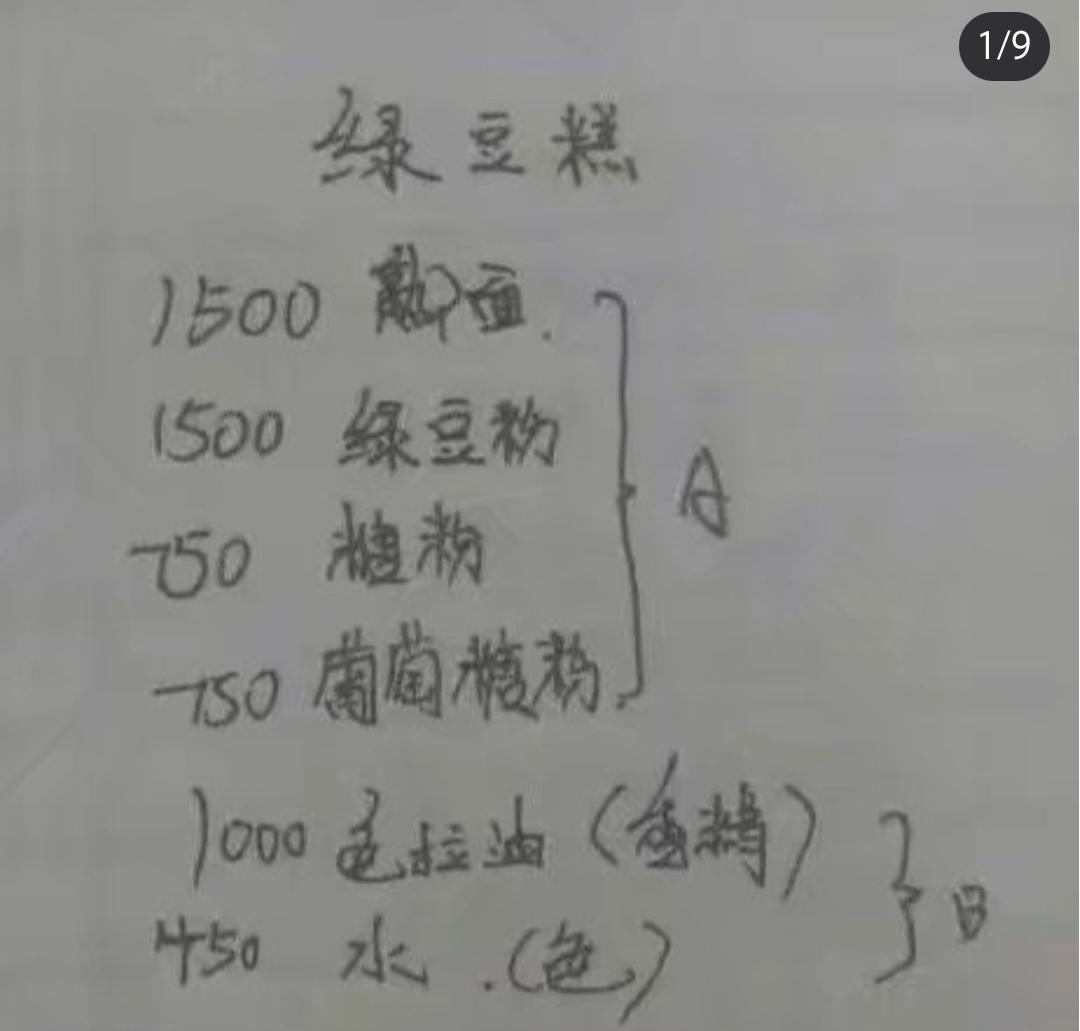 1/9
绿豆糕
1500 熟面.
1500 绿豆粉
750 糖粉
750 葡萄糖粉.
A
1000 色拉油（香精）
450 水.（色）
B